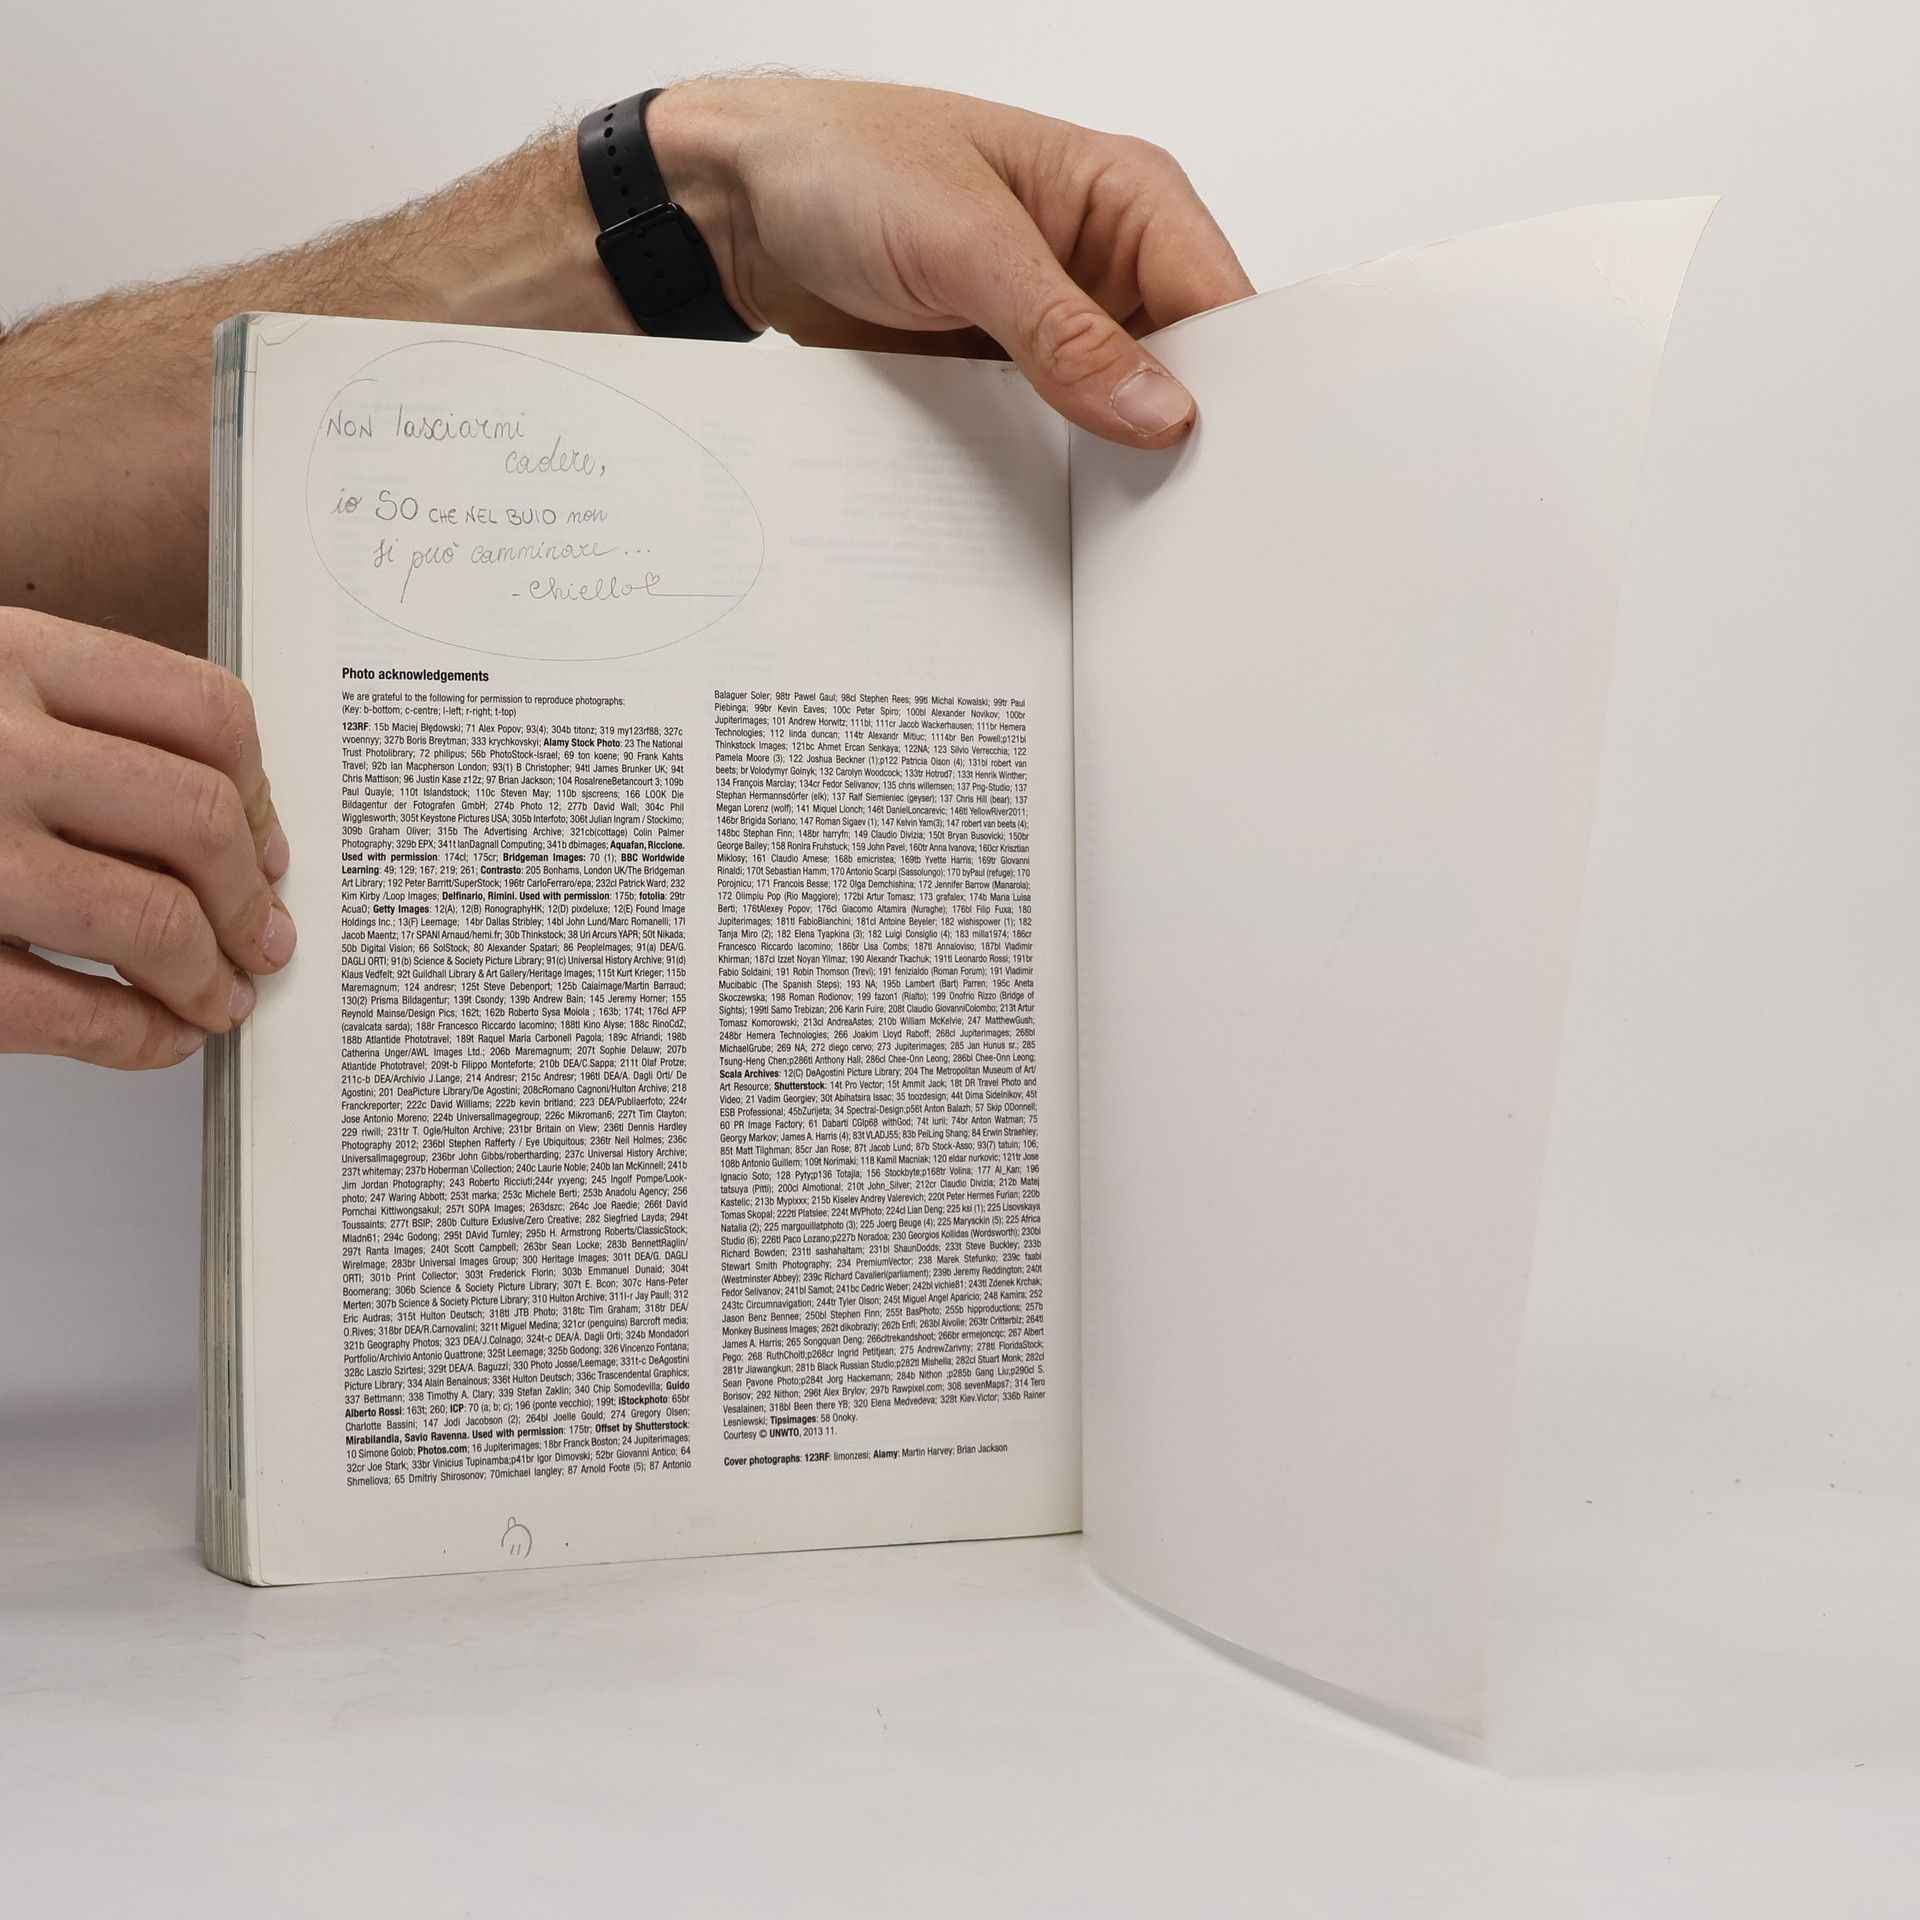 NON lasciarmi
cadere,
io SO CHE NEL BUIO non
si può camminare...
- Chiello
Photo acknowledgements
We are grateful to the following for permission to reproduce photographs:
(Key: b-bottom; c-centre; l-left; r-right; t-top)
123RF: 15b Maciej Błędowski; 71 Alex Popov; 93(4); 304b titonz; 319 my123rf88; 327c
vvoennyy; 327b Boris Breytman; 333 krychkovskyi; Alamy Stock Photo: 23 The National
Trust Photolibrary; 72 philipus; 56b PhotoStock-Israel; 69 ton koene; 90 Frank Kahts
Travel; 92b Ian Macpherson London; 93(1) B Christopher; 94tl James Brunker UK; 94t
Chris Mattison; 96 Justin Kase z12z; 97 Brian Jackson; 104 RosaIreneBetancourt 3; 109b
Paul Quayle; 110t Islandstock; 110c Steven May; 110b sjscreens; 166 LOOK Die
Bildagentur der Fotografen GmbH; 274b Photo 12; 277b David Wall; 304c Phil
Wigglesworth; 305t Keystone Pictures USA; 305b Interfoto; 306t Julian Ingram / Stockimo;
309b Graham Oliver; 315b The Advertising Archive; 321cb(cottage) Colin Palmer
Photography; 329b EPX; 341t IanDagnall Computing; 341b dbimages; Aquafan, Riccione.
Used with permission: 174cl; 175cr; Bridgeman Images: 70 (1); BBC Worldwide
Learning: 49; 129; 167; 219; 261; Contrasto: 205 Bonhams, London UK/The Bridgeman
Art Library; 192 Peter Barritt/SuperStock; 196tr CarloFerraro/epa; 232cl Patrick Ward; 232
Kim Kirby /Loop Images; Delfinario, Rimini. Used with permission: 175b; fotolia: 29tr
AcuaO; Getty Images: 12(A); 12(B) RonographyHK; 12(D) pixdeluxe; 12(E) Found Image
Holdings Inc.; 13(F) Leemage; 14br Dallas Stribley; 14bl John Lund/Marc Romanelli; 17l
Jacob Maentz; 17r SPANI Arnaud/hemi.fr; 30b Thinkstock; 38 Uri Arcurs YAPR; 50t Nikada;
50b Digital Vision; 66 SolStock; 80 Alexander Spatari; 86 PeopleImages; 91(a) DEA/G.
DAGLI ORTI; 91(b) Science & Society Picture Library; 91(c) Universal History Archive; 91(d)
Klaus Vedfelt; 92t Guildhall Library & Art Gallery/Heritage Images; 115t Kurt Krieger; 115b
Maremagnum; 124 andresr; 125t Steve Debenport; 125b Caiaimage/Martin Barraud;
130(2) Prisma Bildagentur; 139t Csondy; 139b Andrew Bain; 145 Jeremy Horner; 155
Reynold Mainse/Design Pics; 162t; 162b Roberto Sysa Moiola ; 163b; 174t; 176cl AFP
(cavalcata sarda); 188r Francesco Riccardo Iacomino; 188tl Kino Alyse; 188c RinoCdZ;
188b Atlantide Phototravel; 189t Raquel Maria Carbonell Pagola; 189c Afriandi; 198b
Catherina Unger/AWL Images Ltd.; 206b Maremagnum; 207t Sophie Delauw; 207b
Atlantide Phototravel; 209t-b Filippo Monteforte; 210b DEA/C.Sappa; 211t Olaf Protze;
211c-b DEA/Archivio J.Lange; 214 Andresr; 215c Andresr; 196tl DEA/A. Dagli Orti/ De
Agostini; 201 DeaPicture Library/De Agostini; 208cRomano Cagnoni/Hulton Archive; 218
Franckreporter; 222c David Williams; 222b kevin britland; 223 DEA/Publiaerfoto; 224r
Jose Antonio Moreno; 224b UniversalImagegroup; 226c Mikroman6; 227t Tim Clayton;
229 riwill; 231tr T. Ogle/Hulton Archive; 231br Britain on View; 236tl Dennis Hardley
Photography 2012; 236bl Stephen Rafferty / Eye Ubiquitous; 236tr Neil Holmes; 236c
UniversalImagegroup; 236br John Gibbs/robertharding; 237c Universal History Archive;
237t whitemay; 237b Hoberman \Collection; 240c Laurie Noble; 240b Ian McKinnell; 241b
Jim Jordan Photography; 243 Roberto Ricciuti;244r yxyeng; 245 Ingolf Pompe/Look-
photo; 247 Waring Abbott; 253t marka; 253c Michele Berti; 253b Anadolu Agency; 256
Pornchai Kittiwongsakul; 257t SOPA Images; 263dszc; 264c Joe Raedie; 266t David
Toussaints; 277t BSIP; 280b Culture Exlusive/Zero Creative; 282 Siegfried Layda; 294t
Mladn61; 294c Godong; 295t DAvid Turnley; 295b H. Armstrong Roberts/ClassicStock;
297t Ranta Images; 240t Scott Campbell; 263br Sean Locke; 283b BennettRaglin/
WireImage; 283br Universal Images Group; 300 Heritage Images; 301t DEA/G. DAGLI
ORTI; 301b Print Collector; 303t Frederick Florin; 303b Emmanuel Dunaid; 304t
Boomerang; 306b Science & Society Picture Library; 307t E. Bcon; 307c Hans-Peter
Merten; 307b Science & Society Picture Library; 310 Hulton Archive; 311l-r Jay Paull; 312
Eric Audras; 315t Hulton Deutsch; 318tl JTB Photo; 318tc Tim Graham; 318tr DEA/
O.Rives; 318br DEA/R.Carnovalini; 321t Miguel Medina; 321cr (penguins) Barcroft media;
321b Geography Photos; 323 DEA/J.Colnago; 324t-c DEA/A. Dagli Orti; 324b Mondadori
Portfolio/Archivio Antonio Quattrone; 325t Leemage; 325b Godong; 326 Vincenzo Fontana;
328c Laszlo Szirtesi; 329t DEA/A. Baguzzi; 330 Photo Josse/Leemage; 331t-c DeAgostini
Picture Library; 334 Alain Benainous; 336t Hulton Deutsch; 336c Trascendental Graphics;
337 Bettmann; 338 Timothy A. Clary; 339 Stefan Zaklin; 340 Chip Somodevilla; Guido
Alberto Rossi: 163t; 260; ICP: 70 (a; b; c); 196 (ponte vecchio); 199t; iStockphoto: 65br
Charlotte Bassini; 147 Jodi Jacobson (2); 264bl Joelle Gould; 274 Gregory Olsen;
Mirabilandia, Savio Ravenna. Used with permission: 175tr; Offset by Shutterstock:
10 Simone Golob; Photos.com; 16 Jupiterimages; 18br Franck Boston; 24 Jupiterimages;
32cr Joe Stark; 33br Vinicius Tupinamba;p41br Igor Dimovski; 52br Giovanni Antico; 64
Shmeliova; 65 Dmitriy Shirosonov; 70michael langley; 87 Arnold Foote (5); 87 Antonio
Balaguer Soler; 98tr Pawel Gaul; 98cl Stephen Rees; 99tl Michal Kowalski; 99tr Paul
Piebinga; 99br Kevin Eaves; 100c Peter Spiro; 100bl Alexander Novikov; 100br
Jupiterimages; 101 Andrew Horwitz; 111bl; 111cr Jacob Wackerhausen; 111br Hemera
Technologies; 112 linda duncan; 114tr Alexandr Mitiuc; 1114br Ben Powell;p121bl
Thinkstock Images; 121bc Ahmet Ercan Senkaya; 122NA; 123 Silvio Verrecchia; 122
Pamela Moore (3); 122 Joshua Beckner (1);p122 Patricia Oison (4); 131bl robert van
beets; br Volodymyr Goinyk; 132 Carolyn Woodcock; 133tr Hotrod7; 133t Henrik Winther;
134 François Marclay; 134cr Fedor Selivanov; 135 chris willemsen; 137 Png-Studio; 137
Stephan Hermannsdörfer (elk); 137 Ralf Siemieniec (geyser); 137 Chris Hill (bear); 137
Megan Lorenz (wolf); 141 Miquel Llonch; 146t DanielLoncarevic; 146tl YellowRiver2011;
146br Brigida Soriano; 147 Roman Sigaev (1); 147 Kelvin Yam(3); 147 robert van beets (4);
148bc Stephan Finn; 148br harryfn; 149 Claudio Divizia; 150t Bryan Busovicki; 150br
George Bailey; 158 Ronira Fruhstuck; 159 John Pavel; 160tr Anna Ivanova; 160cr Krisztian
Miklosy; 161 Claudio Arnese; 168b emicristea; 169tb Yvette Harris; 169tr Giovanni
Rinaldi; 170t Sebastian Hamm; 170 Antonio Scarpi (Sassolungo); 170 byPaul (refuge); 170
Porojnicu; 171 Francois Besse; 172 Olga Demchishina; 172 Jennifer Barrow (Manarola);
172 Olimpiu Pop (Rio Maggiore); 172bl Artur Tomasz; 173 grafalex; 174b Maria Luisa
Berti; 176tAlexey Popov; 176cl Giacomo Altamira (Nuraghe); 176bl Filip Fuxa; 180
Jupiterimages; 181tl FabioBianchini; 181cl Antoine Beyeler; 182 wishispower (1); 182
Tanja Miro (2); 182 Elena Tyapkina (3); 182 Luigi Consiglio (4); 183 milla1974; 186cr
Francesco Riccardo Iacomino; 186br Lisa Combs; 187tl Annaloviso; 187bl Vladimir
Khirman; 187cl Izzet Noyan Yilmaz; 190 Alexandr Tkachuk; 191tl Leonardo Rossi; 191br
Fabio Soldaini; 191 Robin Thomson (Trevi); 191 fenizialdo (Roman Forum); 191 Vladimir
Mucibabic (The Spanish Steps); 193 NA; 195b Lambert (Bart) Parren; 195c Aneta
Skoczewska; 198 Roman Rodionov; 199 fazon1 (Rialto); 199 Onofrio Rizzo (Bridge of
Sights); 199tl Samo Trebizan; 206 Karin Fuire; 208t Claudio GiovanniColombo; 213t Artur
Tomasz Komorowski; 213cl AndreaAstes; 210b William McKelvie; 247 MatthewGush;
248br Hemera Technologies; 266 Joakim Lloyd Raboff; 268cl Jupiterimages; 268bl
MichaelGrube; 269 NA; 272 diego cervo; 273 Jupiterimages; 285 Jan Hunus sr.; 285
Tsung-Heng Chen;p286tl Anthony Hall; 286cl Chee-Onn Leong; 286bl Chee-Onn Leong;
Scala Archives: 12(C) DeAgostini Picture Library; 204 The Metropolitan Museum of Art/
Art Resource; Shutterstock: 14t Pro Vector; 15t Ammit Jack; 18t DR Travel Photo and
Video; 21 Vadim Georgiev; 30t Abihatsira Issac; 35 toozdesign; 44t Dima Sidelnikov; 45t
ESB Professional; 45bZurijeta; 34 Spectral-Design;p56t Anton Balazh; 57 Skip ODonnell;
60 PR Image Factory; 61 Dabarti CGIp68 withGod; 74t lurii; 74br Anton Watman; 75
Georgy Markov; James A. Harris (4); 83t VLADJ55; 83b PeiLing Shang; 84 Erwin Straehley;
85t Matt Tilghman; 85cr Jan Rose; 87t Jacob Lund; 87b Stock-Asso; 93(7) tatuin; 106;
108b Antonio Guillem; 109t Norimaki; 118 Kamil Macniak; 120 eldar nurkovic; 121tr Jose
Ignacio Soto; 128 Pyty;p136 Totajla; 156 Stockbyte;p168tr Volina; 177 Al_Kan; 196
tatsuya (Pitti); 200cl Almotional; 210t John_Silver; 212cr Claudio Divizia; 212b Matej
Kastelic; 213b Mypixxx; 215b Kiselev Andrey Valerevich; 220t Peter Hermes Furian; 220b
Tomas Skopal; 222tl Platslee; 224t MVPhoto; 224cl Lian Deng; 225 ksi (1); 225 Lisovskaya
Natalia (2); 225 margouillatphoto (3); 225 Joerg Beuge (4); 225 Marysckin (5); 225 Africa
Studio (6); 226tl Paco Lozano;p227b Noradoa; 230 Georgios Kollidas (Wordsworth); 230bl
Richard Bowden; 231tl sashahaltam; 231bl ShaunDodds; 233t Steve Buckley; 233b
Stewart Smith Photography; 234 PremiumVector; 238 Marek Stefunko; 239c faabi
(Westminster Abbey); 239c Richard Cavalleri(parliament); 239b Jeremy Reddington; 240t
Fedor Selivanov; 241bl Samot; 241bc Cedric Weber; 242bl vichie81; 243tl Zdenek Krchak;
243tc Circumnavigation; 244tr Tyler Olson; 245t Miguel Angel Aparicio; 248 Kamira; 252
Jason Benz Bennee; 250bl Stephen Finn; 255t BasPhoto; 255b hipproductions; 257b
Monkey Business Images; 262t dikobraziy; 262b Enfi; 263bl Aivolie; 263tr Critterbiz; 264tl
James A. Harris; 265 Songquan Deng; 266cltrekandshoot; 266br ermejoncqc; 267 Albert
Pego; 268 RuthChoitl;p268cr Ingrid Petitjean; 275 AndrewZarivny; 278tl FloridaStock;
281tr Jiawangkun; 281b Black Russian Studio;p282tl Mishella; 282cl Stuart Monk; 282cl
Sean Pavone Photo;p284t Jorg Hackemann; 284b Nithon ;p285b Gang Liu;p290cl S.
Borisov; 292 Nithon; 296t Alex Brylov; 297b Rawpixel.com; 308 sevenMaps7; 314 Tero
Vesalainen; 318bl Been there YB; 320 Elena Medvedeva; 328t Kiev.Victor; 336b Rainer
Lesniewski; Tipsimages: 58 Onoky.
Courtesy © UNWTO, 2013 11.
Cover photographs: 123RF: limonzesi; Alamy: Martin Harvey; Brian Jackson